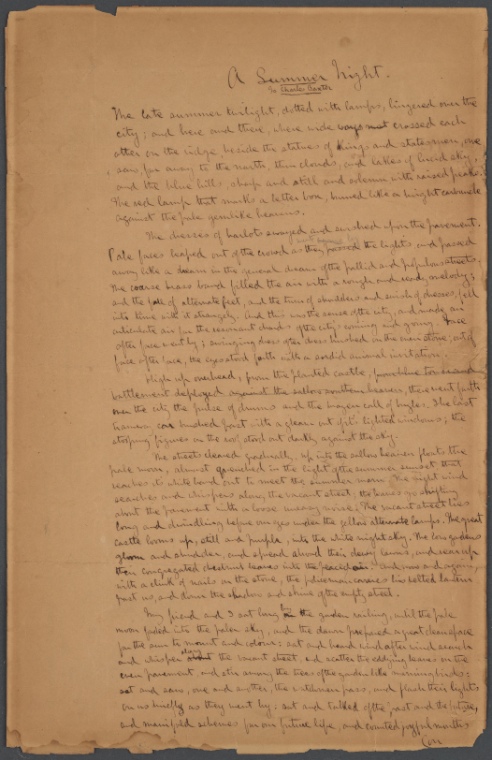 A Summer Night.
To Charles Baxter
The late summer twilight, dotted with lamps, lingered over the
city; and here and there, where wide ways crossed each
other on the ridge, beside the statues of kings and statesmen, one
saw, far away to the north, thin clouds, and lakes of lucid sky,
and the blue hills, sharp and still and solemn with raised peaks.
The red lamp that marks a letter box, burned like a bright carbuncle
against the pale gemlike heavens.
The dresses of harlots swayed and swished upon the pavement.
Pale faces leaped out of the crowd as they the lights and passed
away like a dream in the general dream of the pallid and populous streets.
The coarse brass band filled the air with a rough and ready melody;
and the fall of alternate feet, and the turn of shoulders and swish of dresses, fell
into time with it strangely. And this was the sense of the city, and
out for the resonant of the city's coming and going. Face
after face went by; swinging dress after dress brushed on the even stone; out of
face after face, the eyes stared forth with a sordid animal invitation.
High up overhead, from the castle,
battlement deployed against the yellow southern heavens, there went forth
over the city, the pulse of drums and the brazen call of bugles. The last
tramway car past with a gleam out of its lighted windows; the
stooping figures on the roof stood out darkly against the sky.
The streets cleared gradually. Up into the yellow heaven floats the
pale moon, almost quenched in the light of the summer sunset that
reaches its white hand out to meet the summer morn. The night wind
searches and whispers along the vacant street; the leaves go shifting
about the pavement with a loose uneasy noise; the vacant street lies
long and dwindling before our eyes under the yellow alternate lamps. The great
castle looms up, still and purple, into the white night sky. The low gardens
gloom and shudder, and spread abroad their dewy lawns, and rear up
their congregated chestnut leaves into the peaceful air. And now and again,
with a clink of nails on the stone, the policeman carries his belted lantern
past us, and down the shadow and shine of the empty street.
My friend and I sat long by the garden railing, until the pale
moon faded into the paler sky, and the dawn prepared a great clean space
for the sun to mount and colour: sat and heard wind after wind awake
and whisper along the vacant street, and scatter the eddying leaves on the
even pavement, and stir among the trees of the garden like morning birds:
sat and saw, one and another, the watchmen pass, and flash their lights
on us briefly as they went by: sat and talked of the past and the future,
and manifold schemes for our future life, and counted joyful months